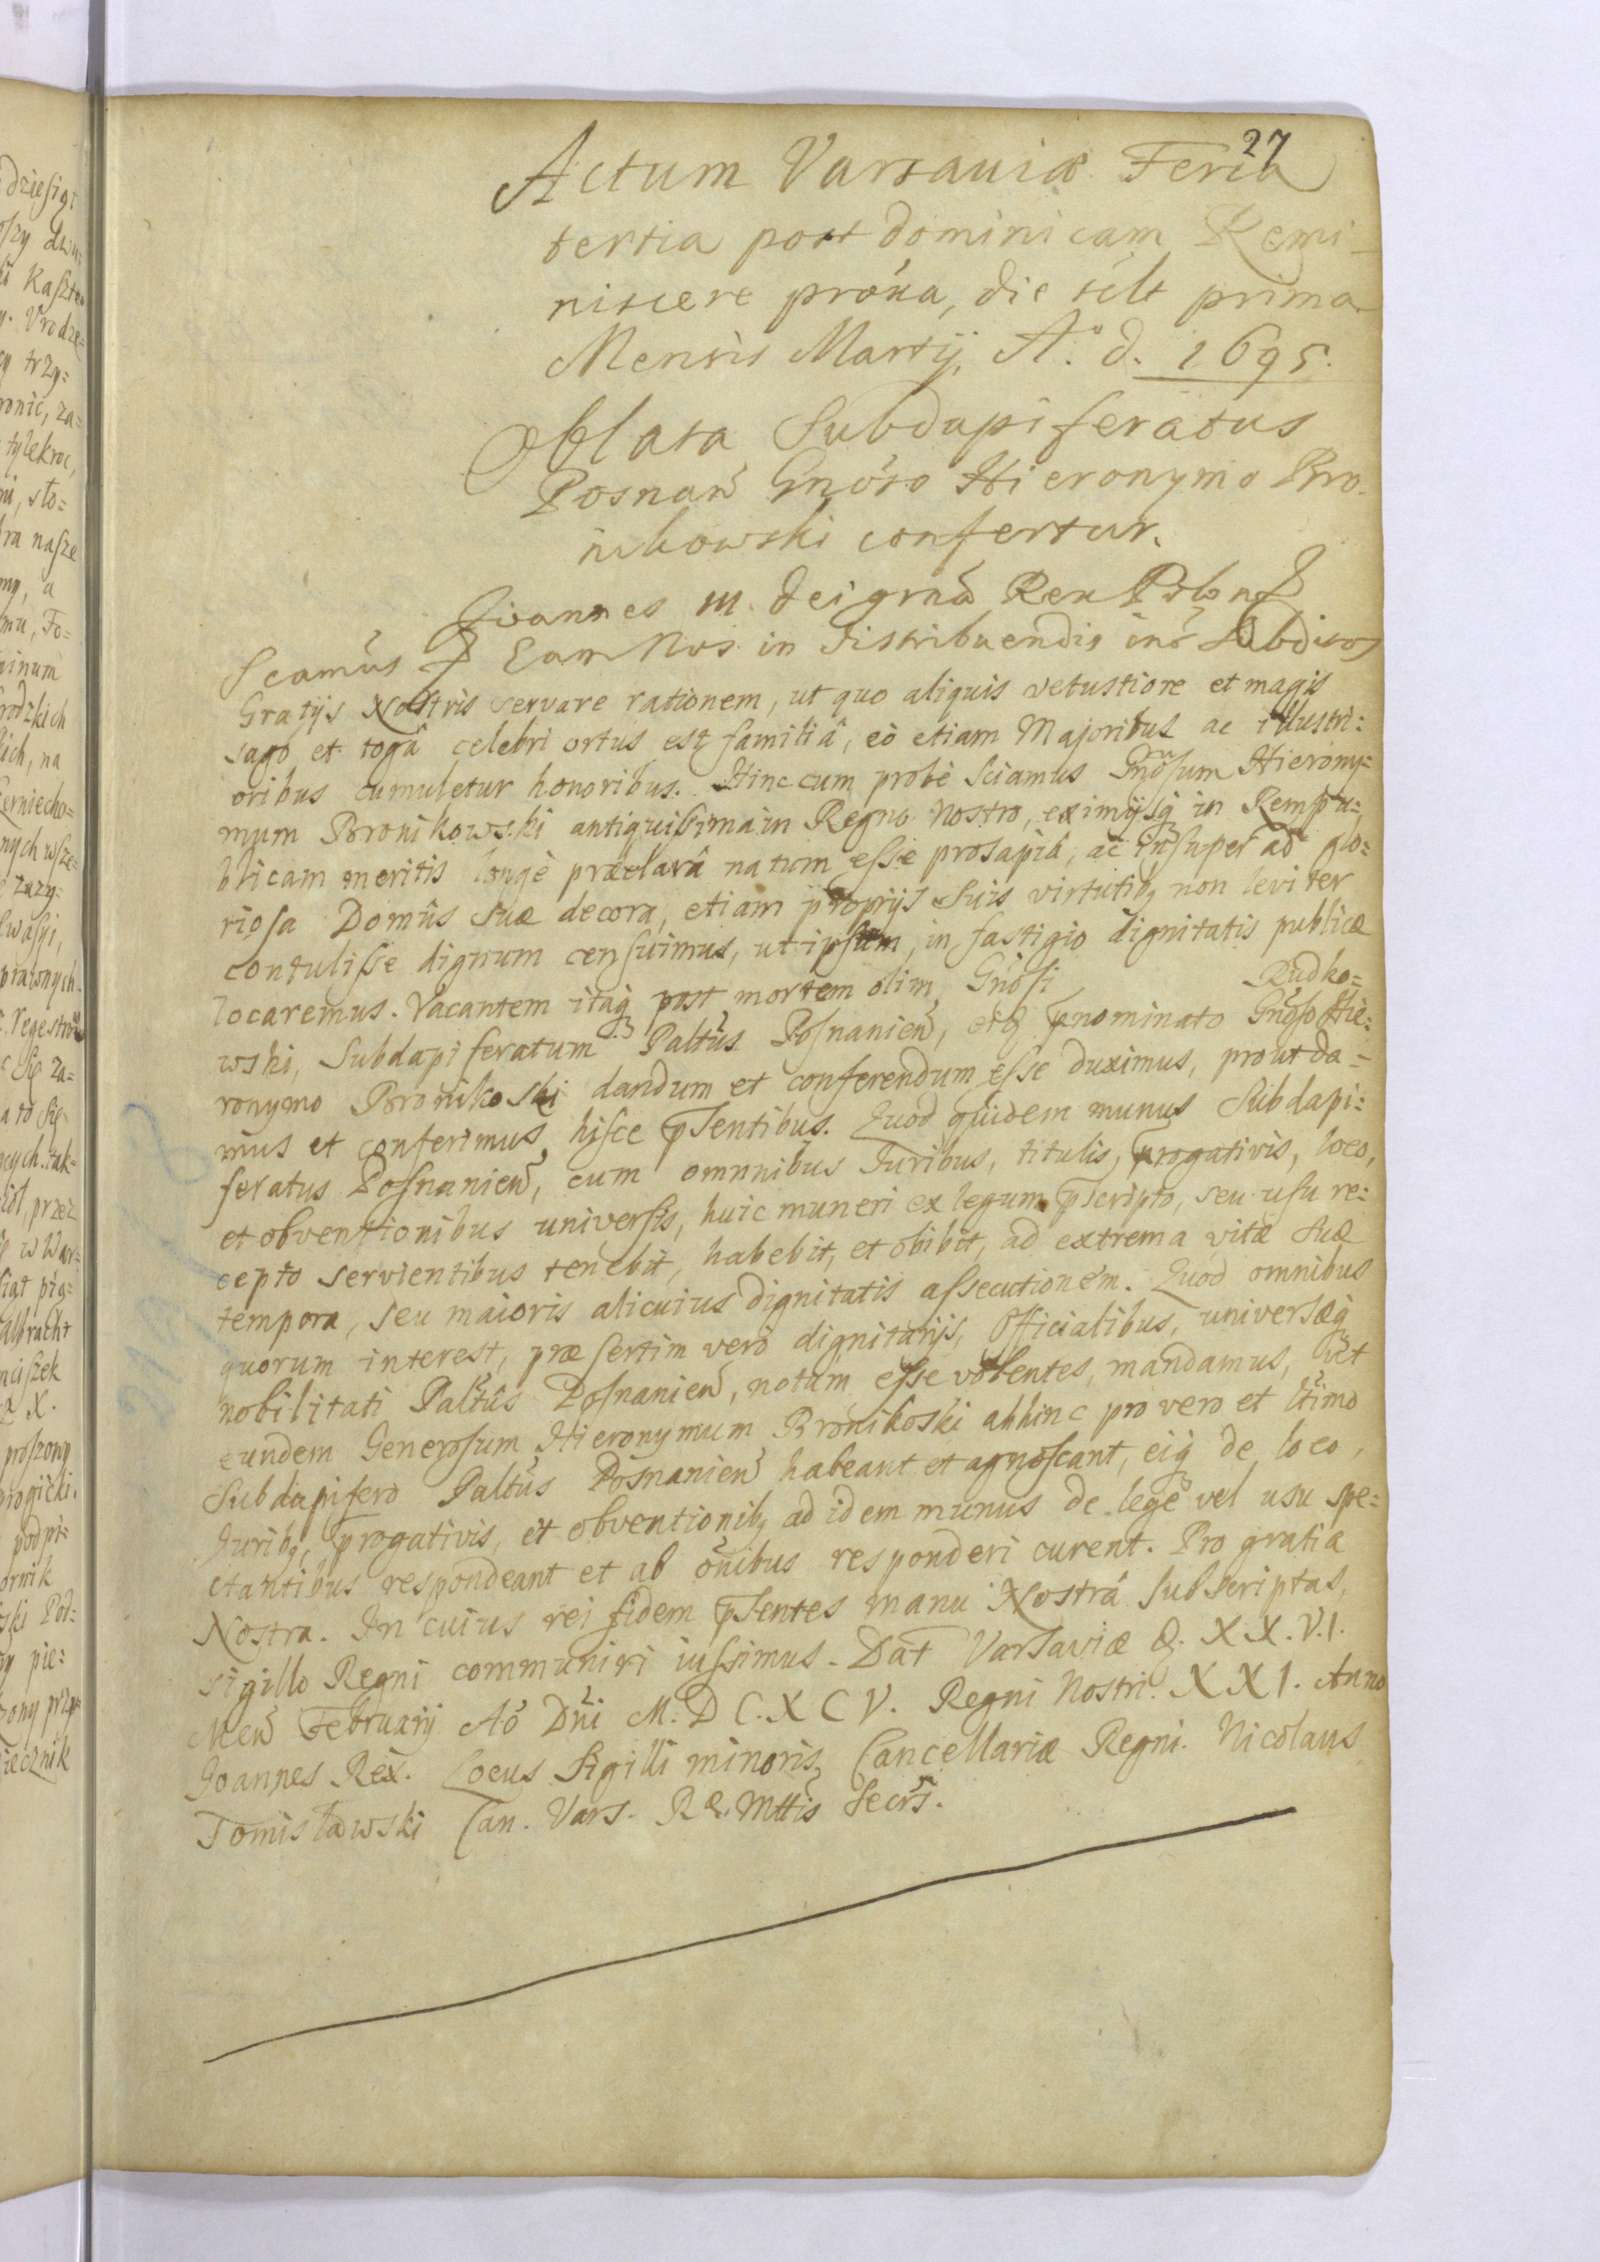 27
Actum Varsaviæ Feria
tertia post dominicam Remi-
niscere proxa, die sclt prima
Mensis Martij, A.° d. 1695.
Oblata Subdapiferatus
Posnań Gnoso Hieronymo Bro-
nikowski confertur.
Joannes III. Dei grãa Rex Polon
Scamus Eam Nos in distribuendis int Subditos
Gratijs Nostris servare rationem, ut quo aliquis vetustiore et magis
sago et togâ celebri ortus est familiâ, eò etiam Majoribus ac illustri:
oribus cumuletur honoribus. Hinc cum probè Sciamus Gnosum Hierony=
mum Bronikowski antiquissima in Regno Nostro, eximijsq in Rempu:
blicam meritis longè præclarâ natum esse prosapiâ, ac insuper ad glo:
riosa Domûs suæ decora, etiam proprijs Suis virtutib, non leviter
contulisse dignum censuimus, ut ipsum, in fastigio dignitatis publicæ
locaremus. Vacantem itaq post mortem olim Gnosi Rudko=
wski, Subdapiferatum Paltûs Posnanień, eidẽ pnominato Gnoso Hie:
ronymo Bronikoski dandum et conferendum esse duximus, prout da-
mus et conferimus hisce psentibus. Quod quidem munus Subdapi:
feratus Posnanień, cum omnnibus Juribus, titulis, progativis, loco,
et obventionibus universis, huic muneri ex legum pscripto, seu usu re:
cepto servientibus tenebit, habebit, et obibit, ad extrema vitæ suæ
tempora, seu maioris alicuius dignitatis assecutionem. Quod omnibus
quorum interest, præsertim vero dignitarijs, Officialibus, universæq
nobilitati Paltûs Posnanień, notum esse volentes, mandamus, ut
eundem Generosum Hieronymum Bronikoski abhinc pro vero et ltimo
Subdapifero Paltûs Posnanień habeant et agnoscant, eiq de loco,
Juribq, progativis, et obventionib, ad idem munus de lege vel usu spe:
ctantibus respondeant et ab oñibus responderi curent. Pro gratia
Nostra. In cuius rei fidem psentes manu Nostrâ subscriptas,
sigillo Regni communiri iussimus. Dat Varsaviæ D. X.X.V.I.
Meń Februarij Aõ Dñi M.D C.X C V. Regni Nostri. X X I. Anno
Joannes Rex. Locus Sigilli minoris Cancellariæ Regni. Nicolaus
Tomisławski Can. Vars. R. Mttis Secrs.